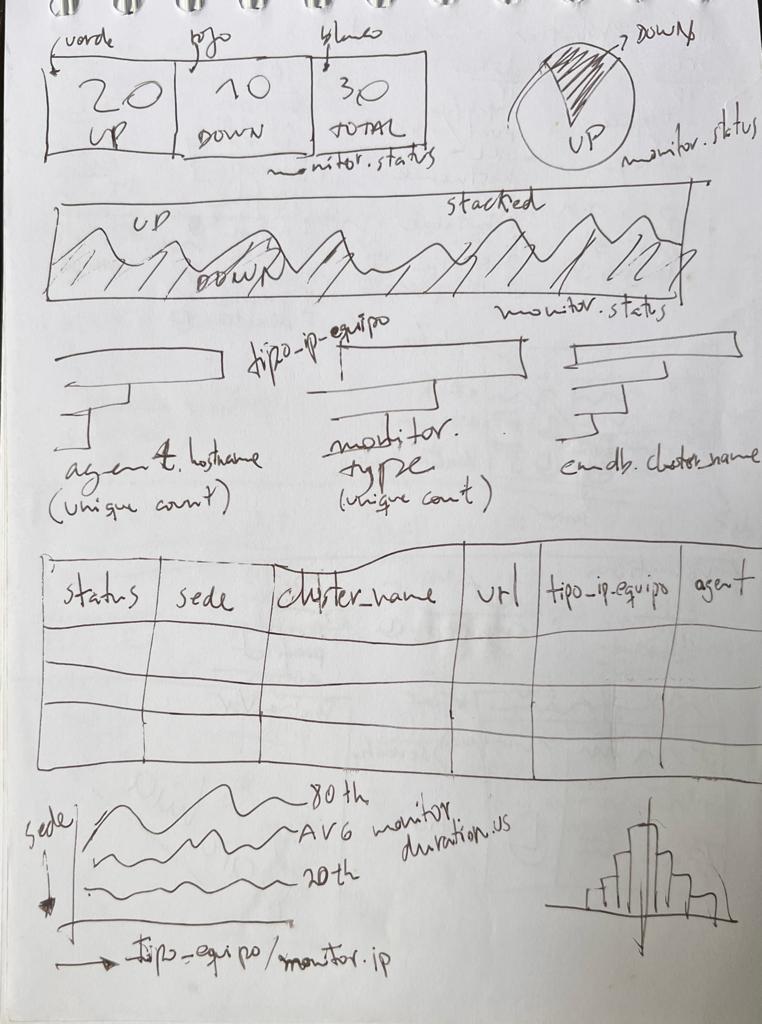 verde rojo blanco
20 10 30
UP DOWN TOTAL
monitor.status
DOWN
UP
monitor.status
UP stacked
DOWN
monitor.status
tipo_ip_equipo
agent.hostname
(unique count)
monitor.
type
(unique count)
cmdb.cluster_name
status sede cluster_name url tipo_ip_equipo agent
sede
80th
AVG monitor.
duration.us
20th
tipo_equipo/monitor.ip